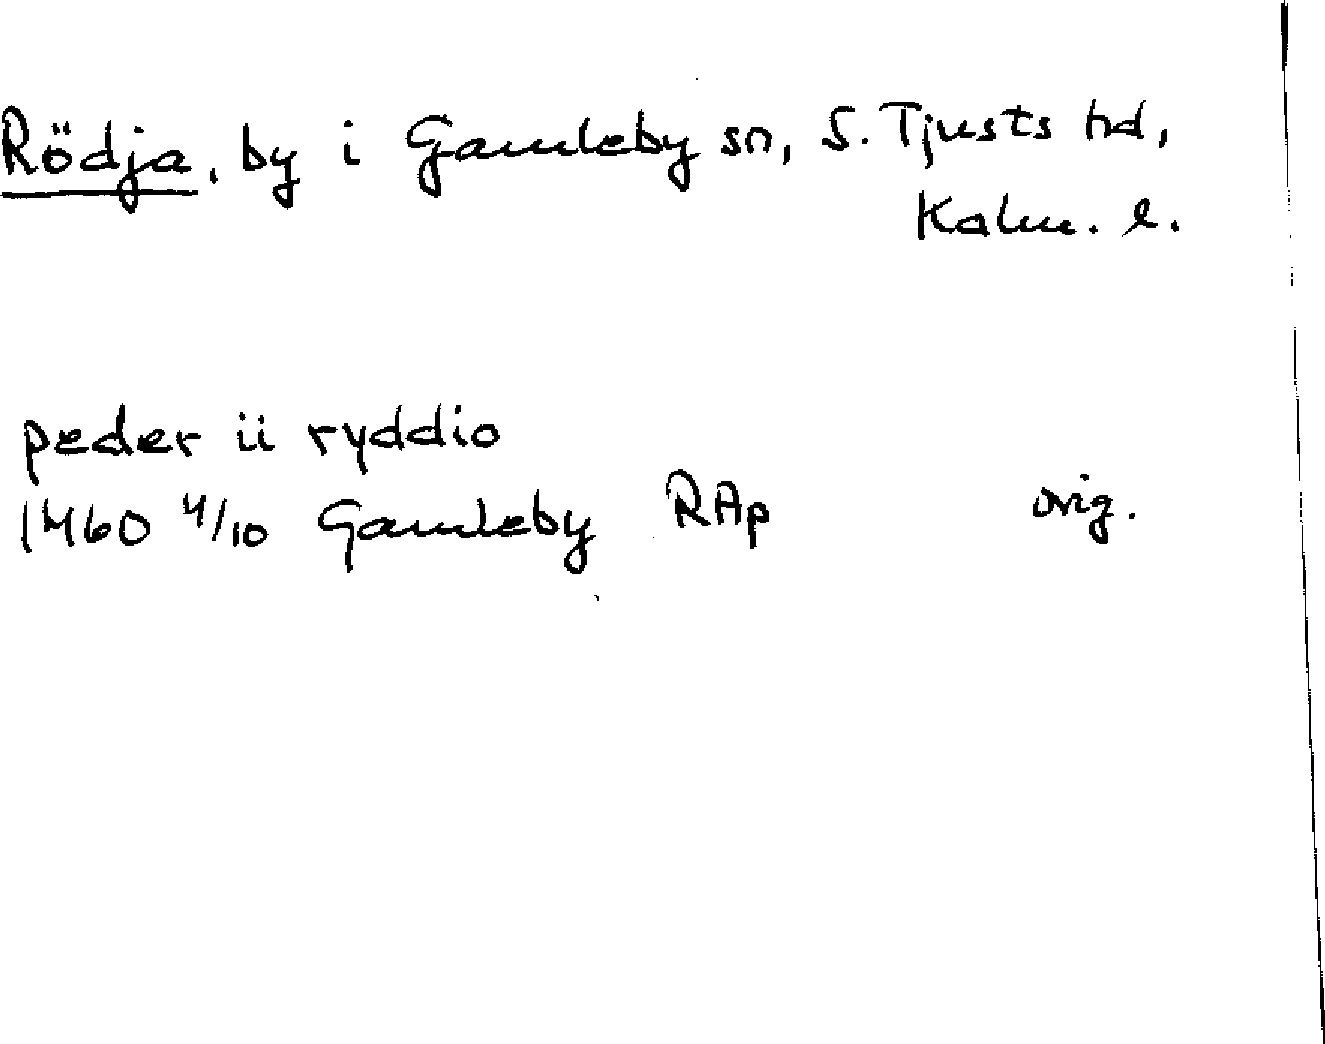 Rödja, by i Gamleby sn, S. Tjusts hd,
Kalm. l.
peder ii ryddio
1460 4/10 Gamleby RAp orig.